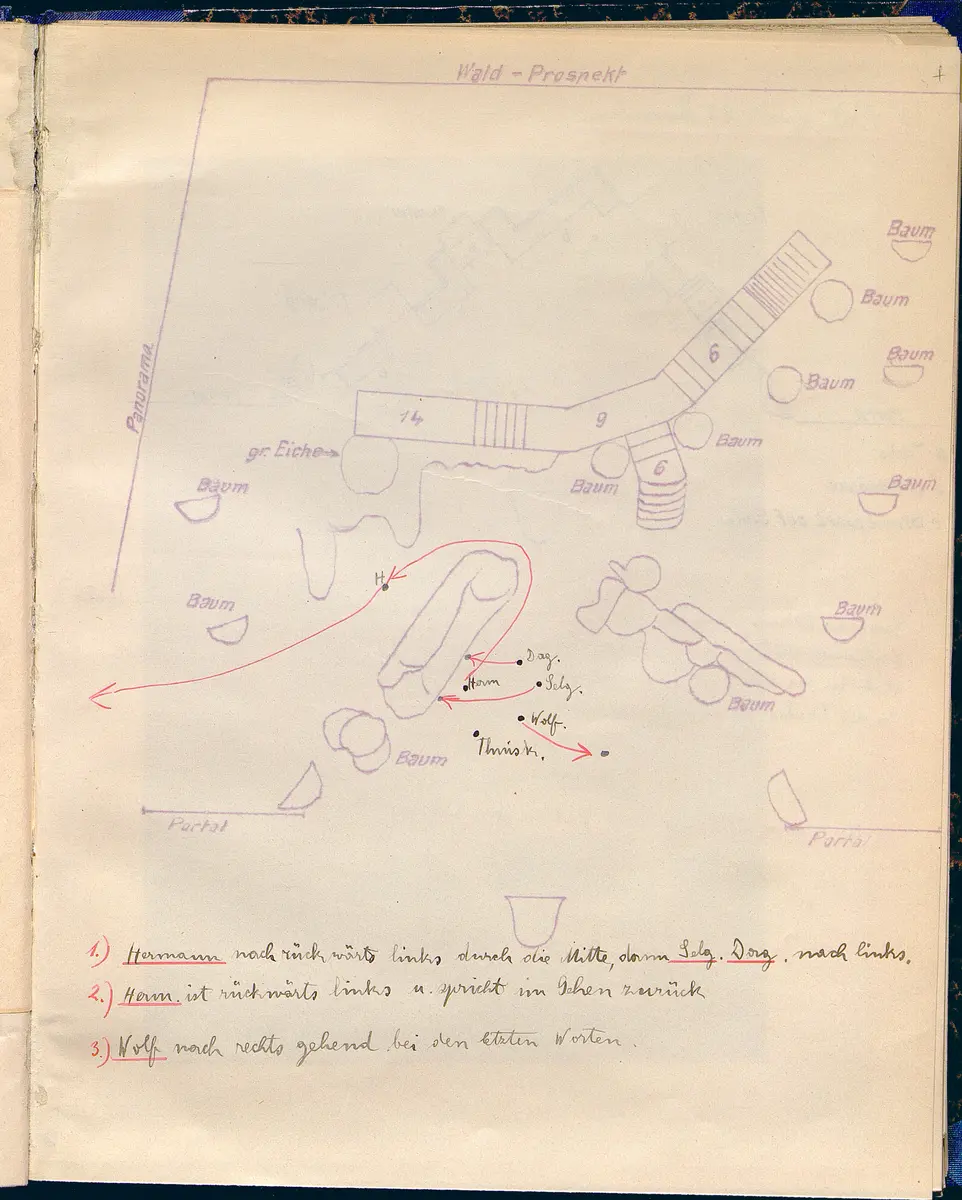 Wald - Prospekt
Baum
Baum
Panorama
6
Baum
Baum
14
9
gr. Eiche
Baum
6
Baum
Baum
Baum
H
Baum
Baum
Dag.
Herm
Selg.
Baum
Wolf.
Thusk.
Baum
Portal
Portal
1.) Hermann nach rückwärts links durch die Mitte, dann Selg. Dag. nach links.
2.) Herm. ist rückwärts links u. spricht im Gehen zurück
3.) Wolf nach rechts gehend bei den letzten Worten.